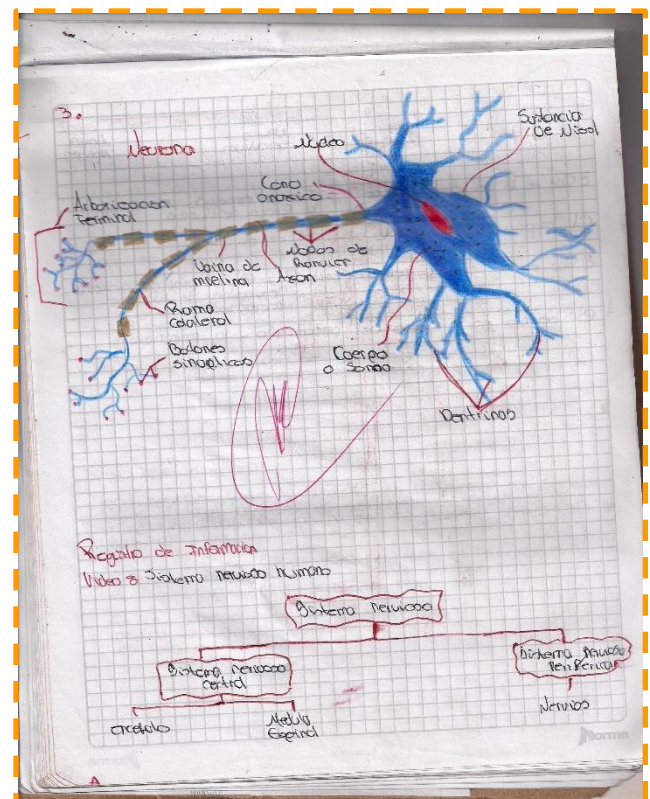 3.
Neurona
Nucleo
Sustancia
De Nissl
Cono
axonico
Arborizacion
Terminal
Nodos de
Ranvier
Vaina de
mielina
Axon
Rama
Colateral
Botones
sinapticos
Cuerpo
o Soma
Dentrinas
Registro de Informacion
Video 8 Sistema nervioso humano
Sistema nervioso
Sistema nervioso
central
Sistema nervioso
Periferico
encefalo
Medula
Espinal
Nervios
Norma
A